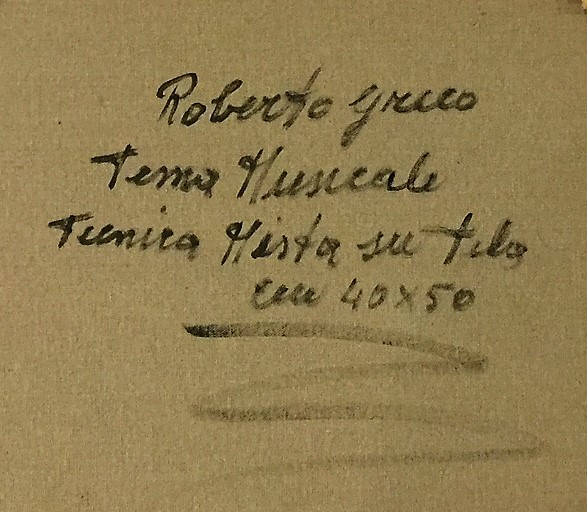 Roberto Greco
Tema Musicale
Tecnica Mista su tela
cm 40x50